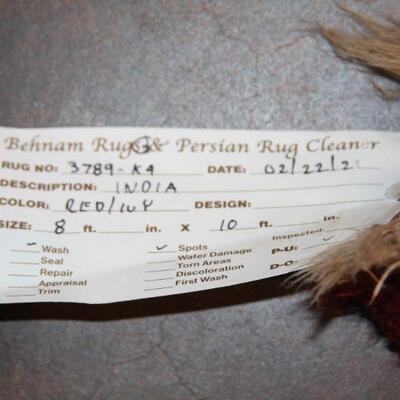 Behnam Rug & Persian Rug Cleaner
RUG NO: 3789-K4 DATE: 02/22/21
DESCRIPTION: INDIA
COLOR: RED/IVY DESIGN:
SIZE: 8 ft. in. X 10 ft. in.
✓ Wash ✓ Spots Inspected:
Seal Water Damage P-U: ✓
Repair Torn Areas
Appraisal Discoloration D-O:
Trim First Wash